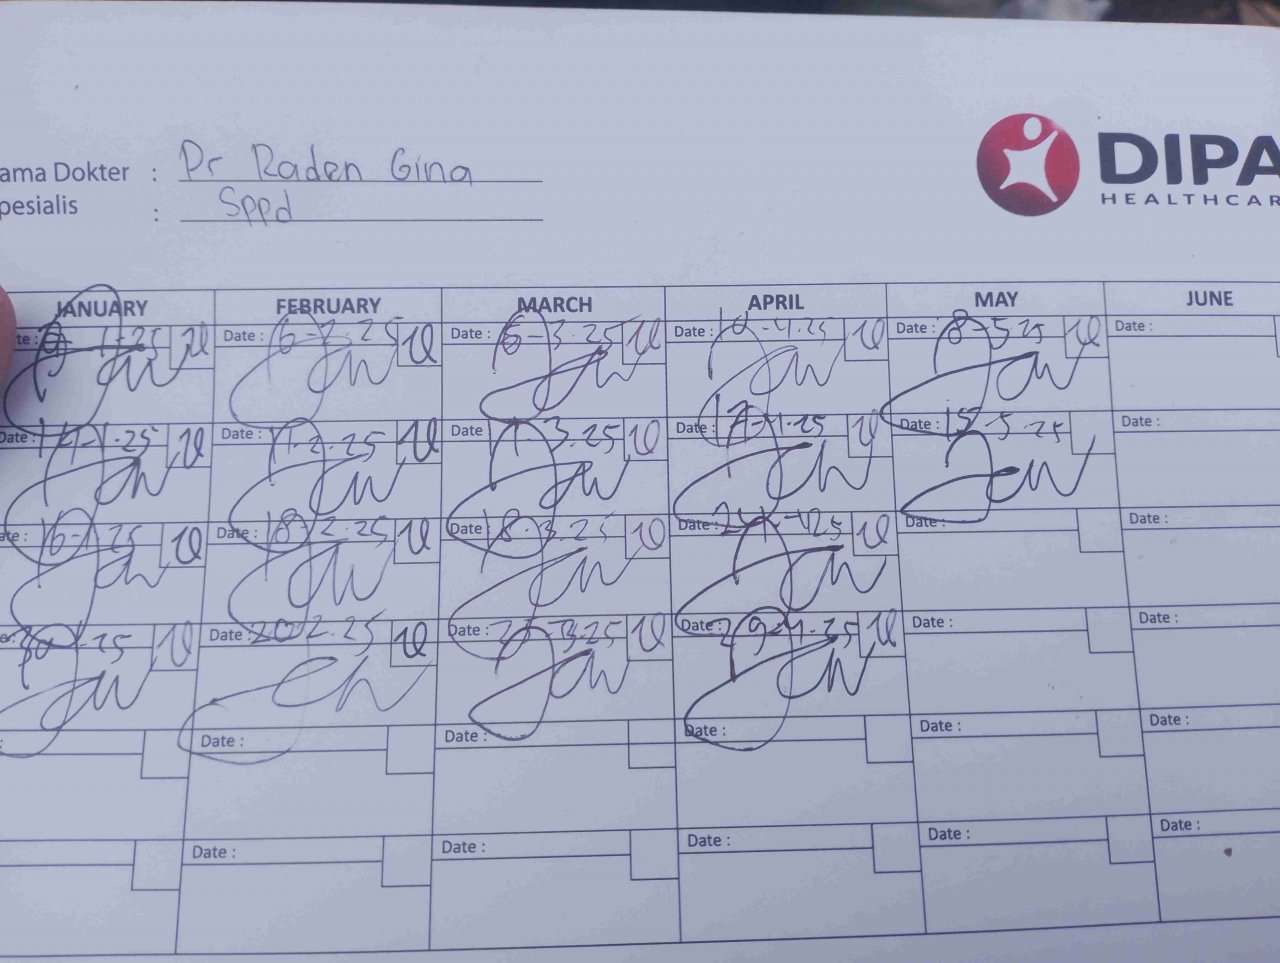 ama Dokter : Dr Raden Gina
pesialis : Sppd
DIPA
HEALTHCAR
JANUARY FEBRUARY MARCH APRIL MAY JUNE
te: 9-1-25 Date: 6-2.25 Date: 6-3.25 Date: 10-4.25 Date: 8-5.25 Date:
Date: 14-1.25 Date: 11-2.25 Date 11-3.25 Date: 17-4.25 Date: 15-5.25 Date:
ate: 16-1.25 Date: 18-2.25 Date 18-3.25 Date: 24-4.25 Date: Date:
30-1.25 Date: 20-2.25 Date: 25-3.25 Date: 29-4.25 Date: Date:
: Date: Date: Date: Date: Date:
Date: Date: Date: Date: Date: